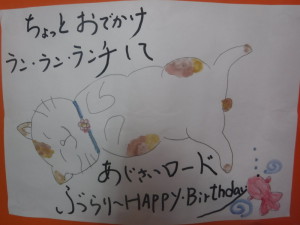 ちょっと おでかけ
ラン・ラン・ランチして
あじさいロード
ぶっらり～HAPPY・Birthday